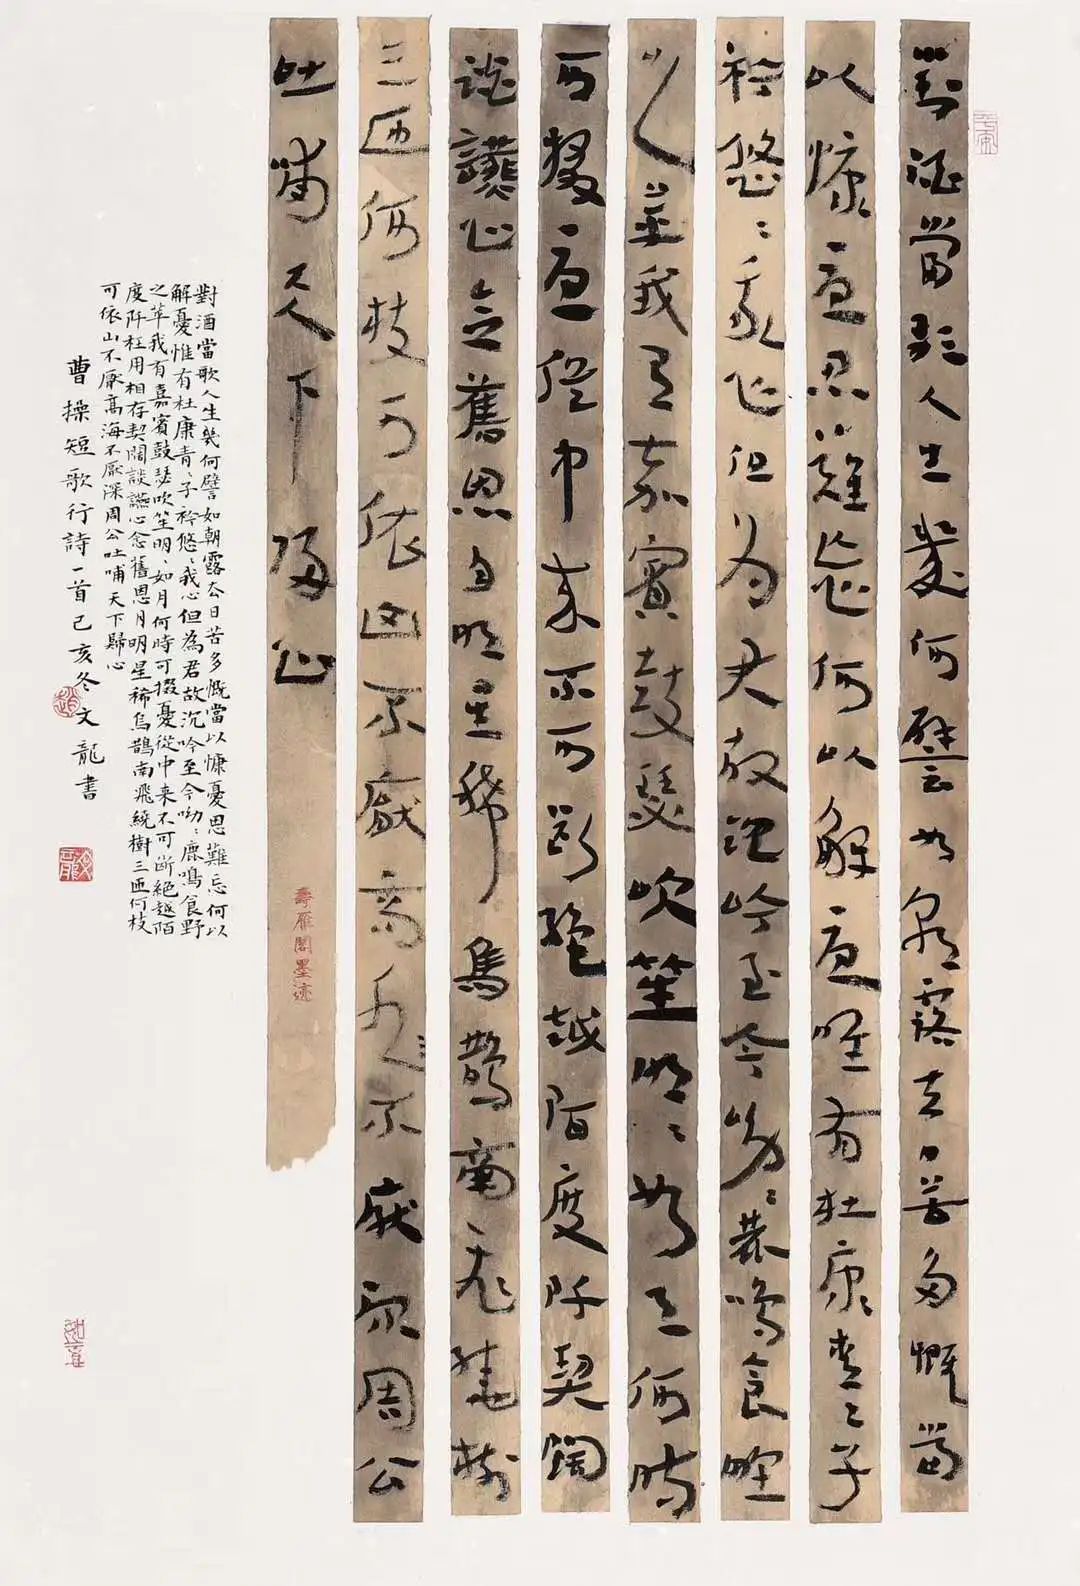 對酒當歌人生幾何譬如朝露去日苦多慨當
以慷憂思難忘何以解憂唯有杜康青〻子
衿悠〻我心但为君故沉吟至今呦〻鹿鳴食野
之苹我有嘉賓鼓瑟吹笙明〻如月何時
可掇憂從中来不可斷絕越陌度阡契闊
談讌心念舊恩月明星稀烏鵲南飛繞樹
三匝何枝可依山不厭高海不厭深周公
吐哺天下歸心
壽雁閣墨迹
對酒當歌人生幾何譬如朝露去日苦多慨當以慷憂思難忘何以
解憂惟有杜康青〻子衿悠〻我心但為君故沉吟至今呦〻鹿鳴食野
之苹我有嘉賓鼓瑟吹笙明〻如月何時可掇憂從中来不可斷絕越陌
度阡枉用相存契闊談讌心念舊恩月明星稀烏鵲南飛繞樹三匝何枝
可依山不厭高海不厭深周公吐哺天下歸心
曹操短歌行詩一首己亥冬文龍書
文龍